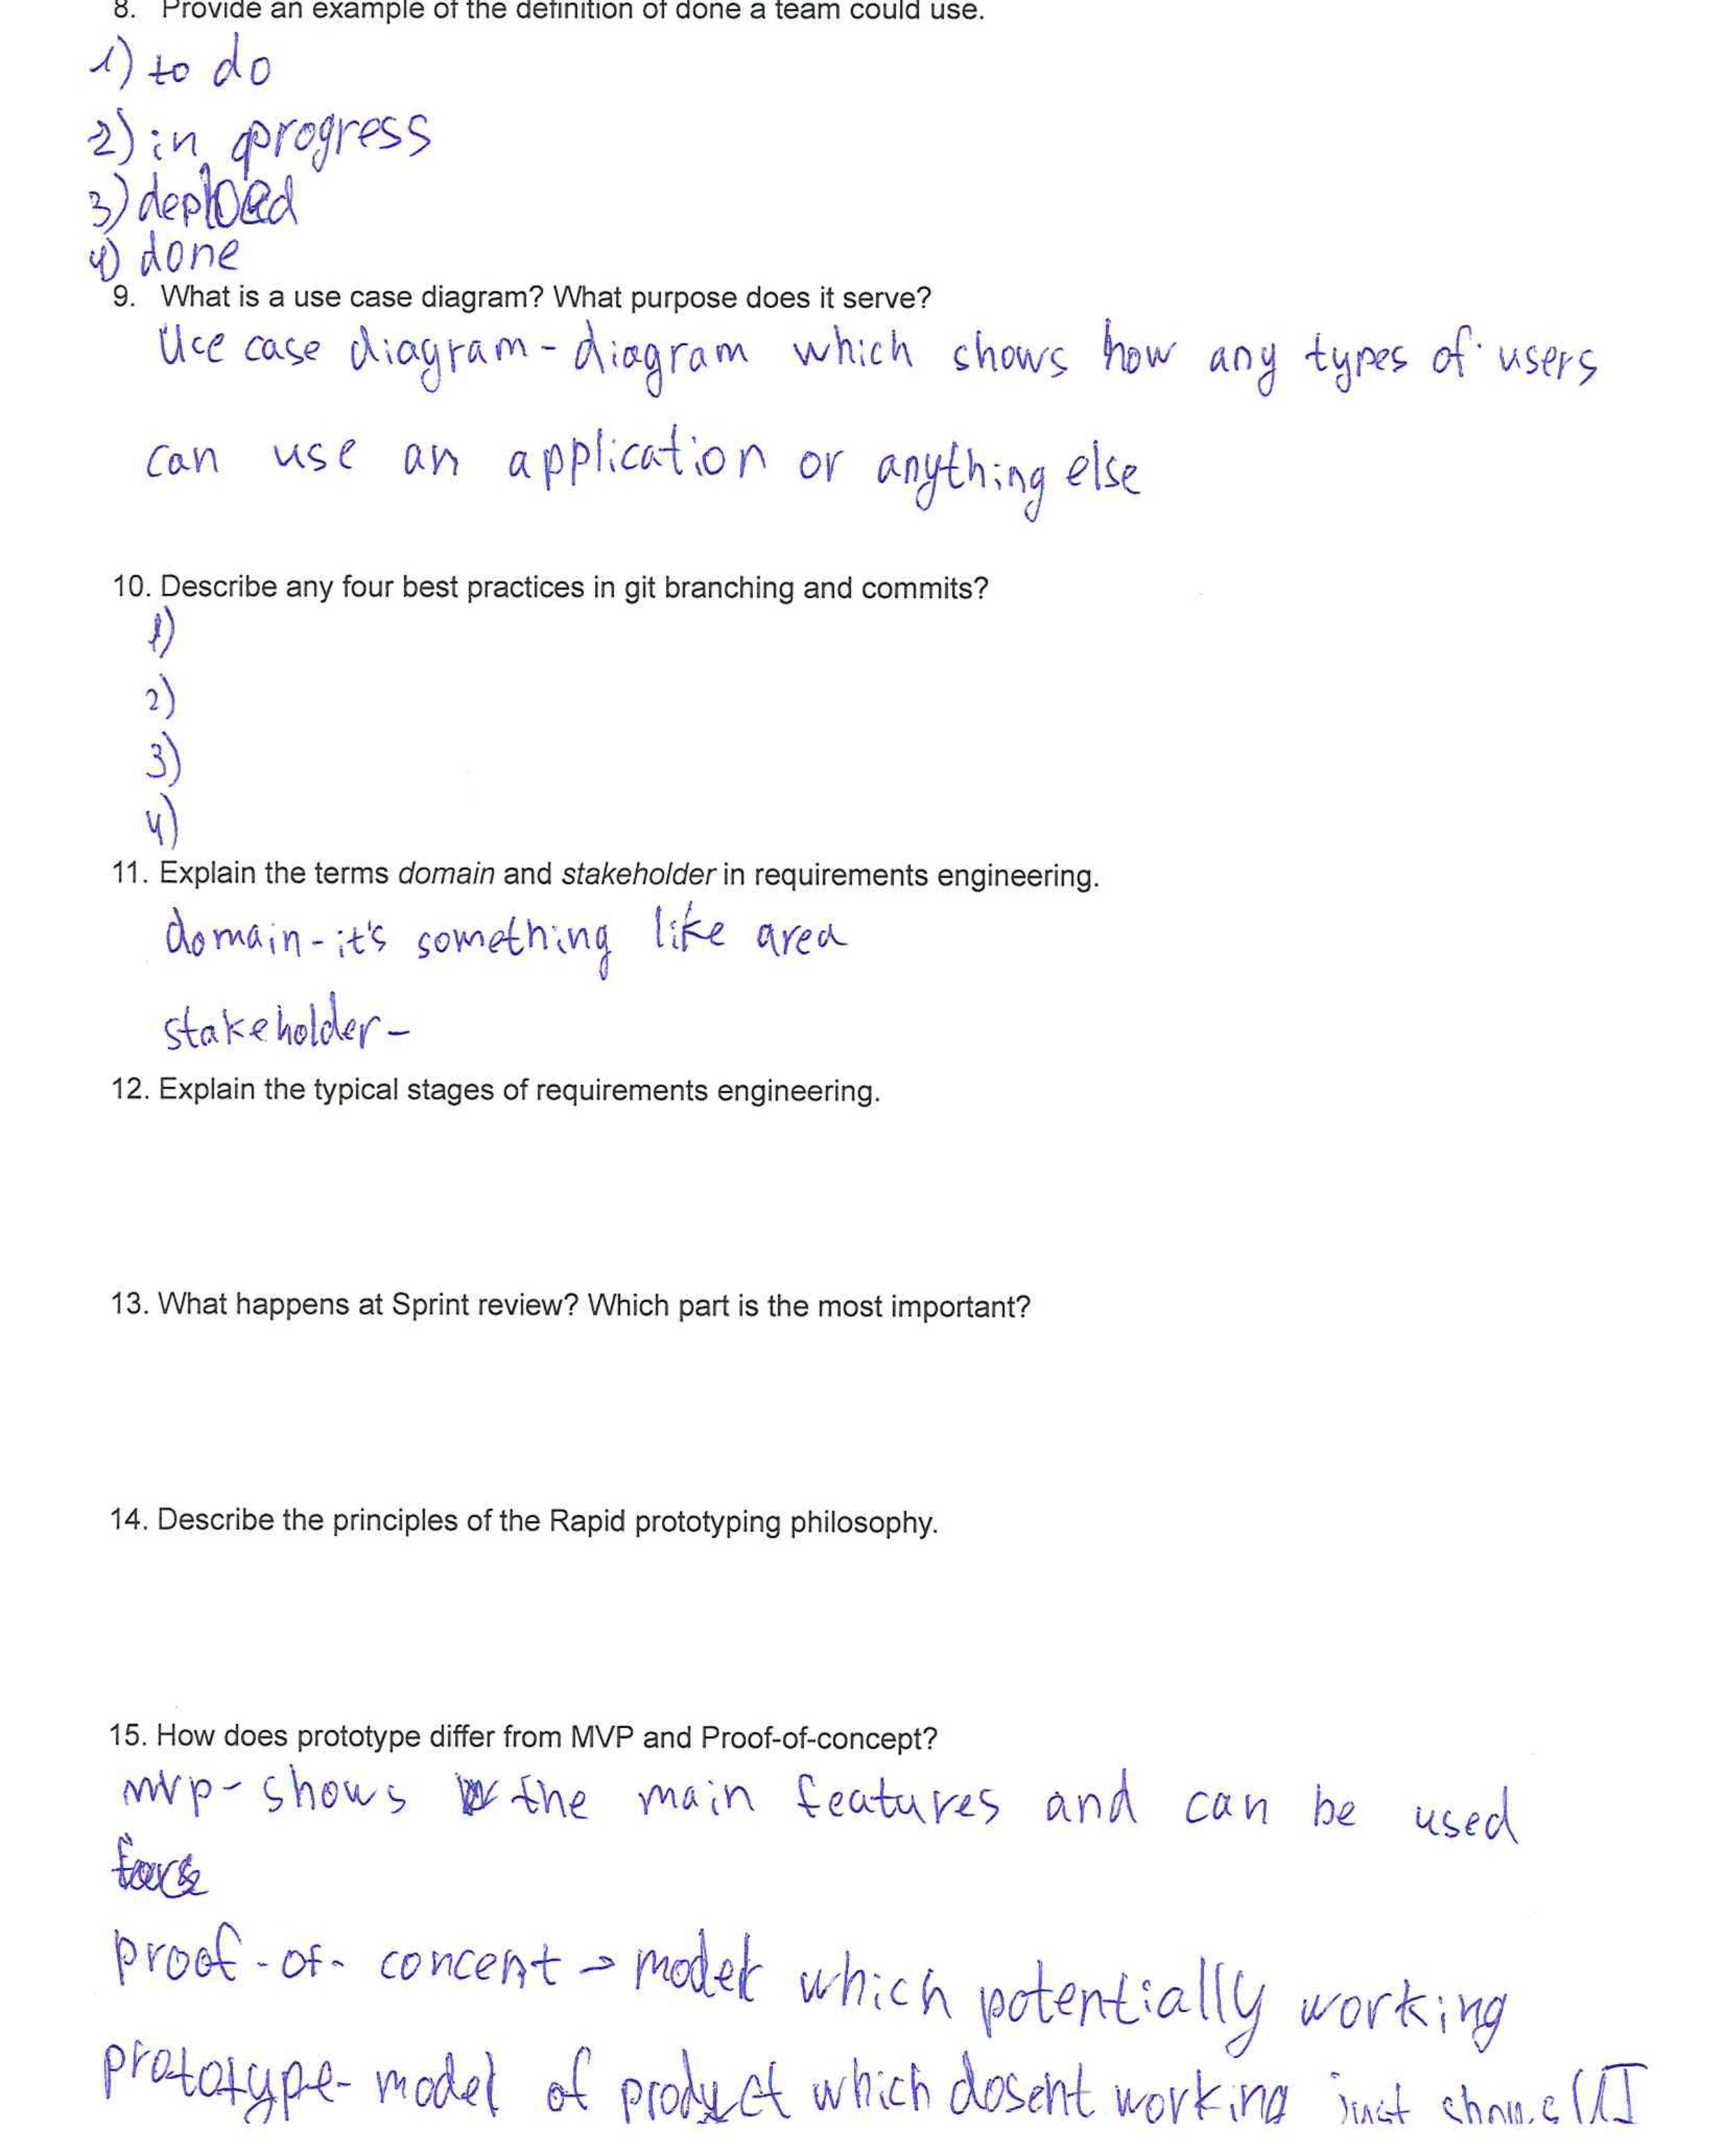 8. Provide an example of the definition of done a team could use.
1) to do
2) in progress
3)
4) done
9. What is a use case diagram? What purpose does it serve?
Uce case diagram - diagram which shows how any types of users
can use an application or anything else
10. Describe any four best practices in git branching and commits?
1)
2)
3)
4)
11. Explain the terms domain and stakeholder in requirements engineering.
domain - it's something like area
stakeholder -
12. Explain the typical stages of requirements engineering.
13. What happens at Sprint review? Which part is the most important?
14. Describe the principles of the Rapid prototyping philosophy.
15. How does prototype differ from MVP and Proof-of-concept?
mvp - shows the main features and can be used
proof - of - concept -> model which potentially working
prototype - model of product which dosent working just shows UI